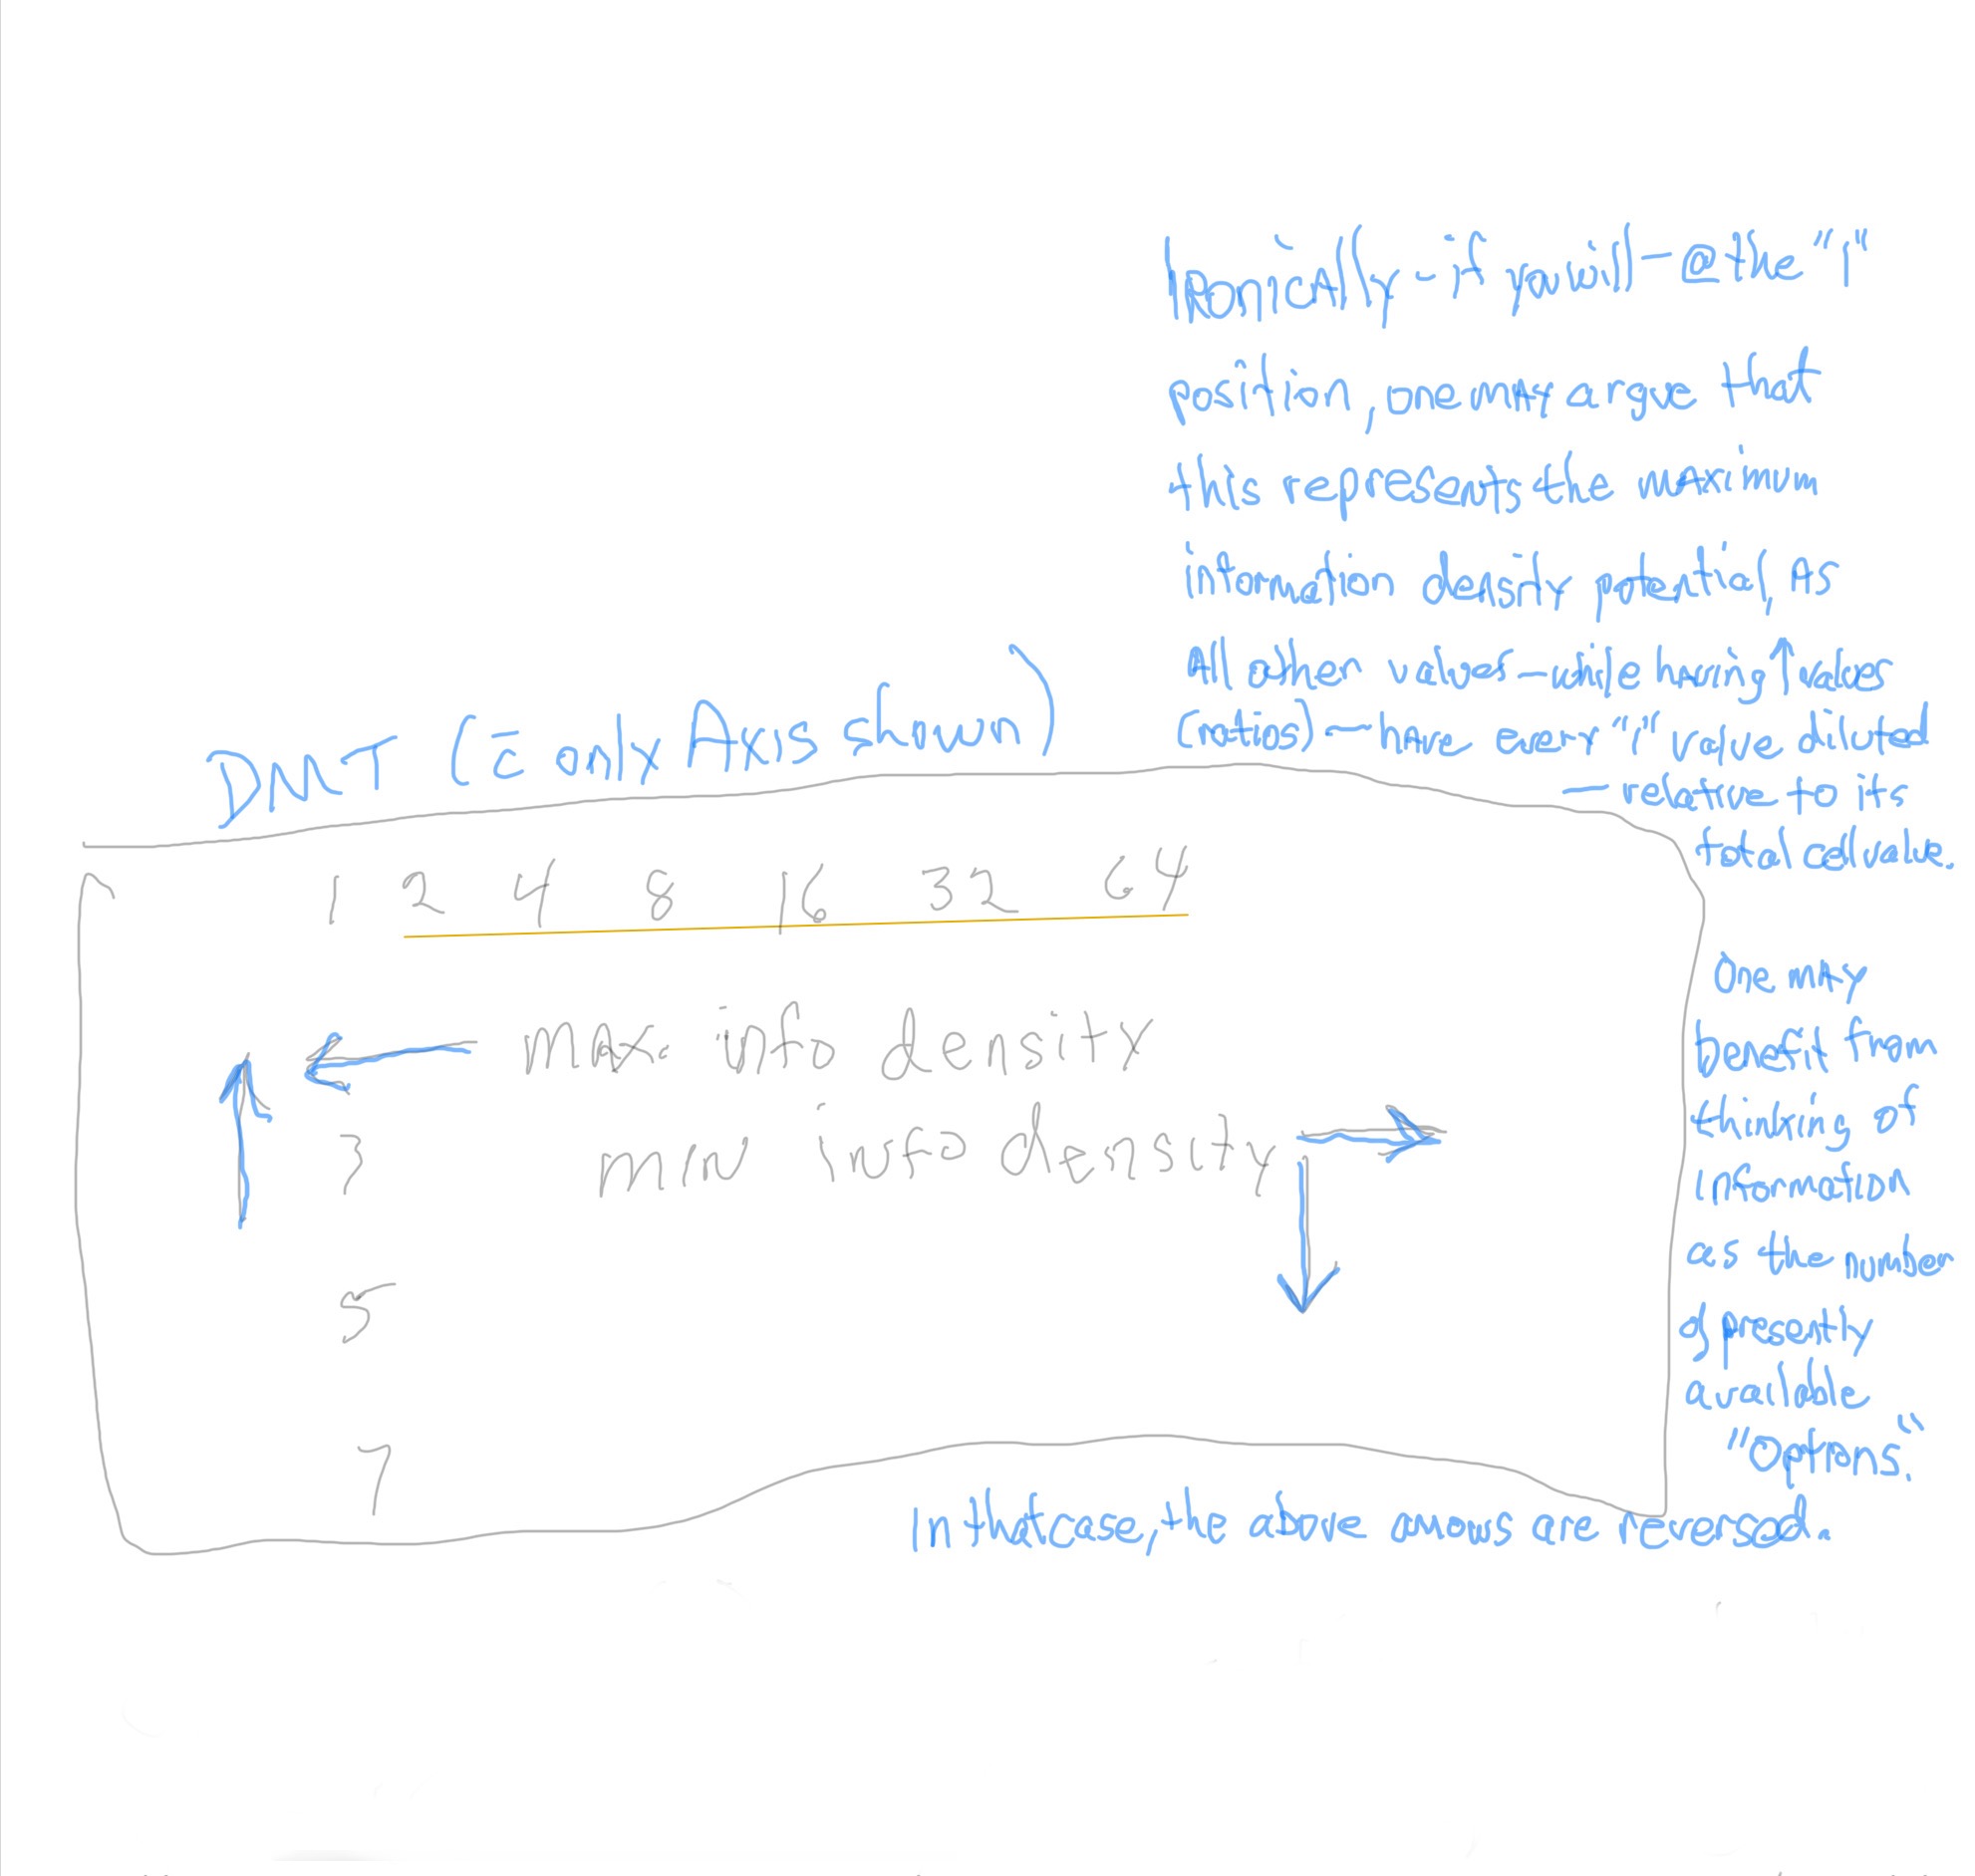 Ironically - if you will - @ the "1"
position, one may argue that
this represents the maximum
information density potential, As
All other values - while having ↑ values
(ratios) - have every "1" value diluted
- relative to its
total cell value.
DMT (c̄ only Axis shown)
1 2 4 8 16 32 64
max. info density
3 min info density
5
7
One may
benefit from
thinking of
information
as the number
of presently
available
"Options."
In that case, the above arrows are reversed.